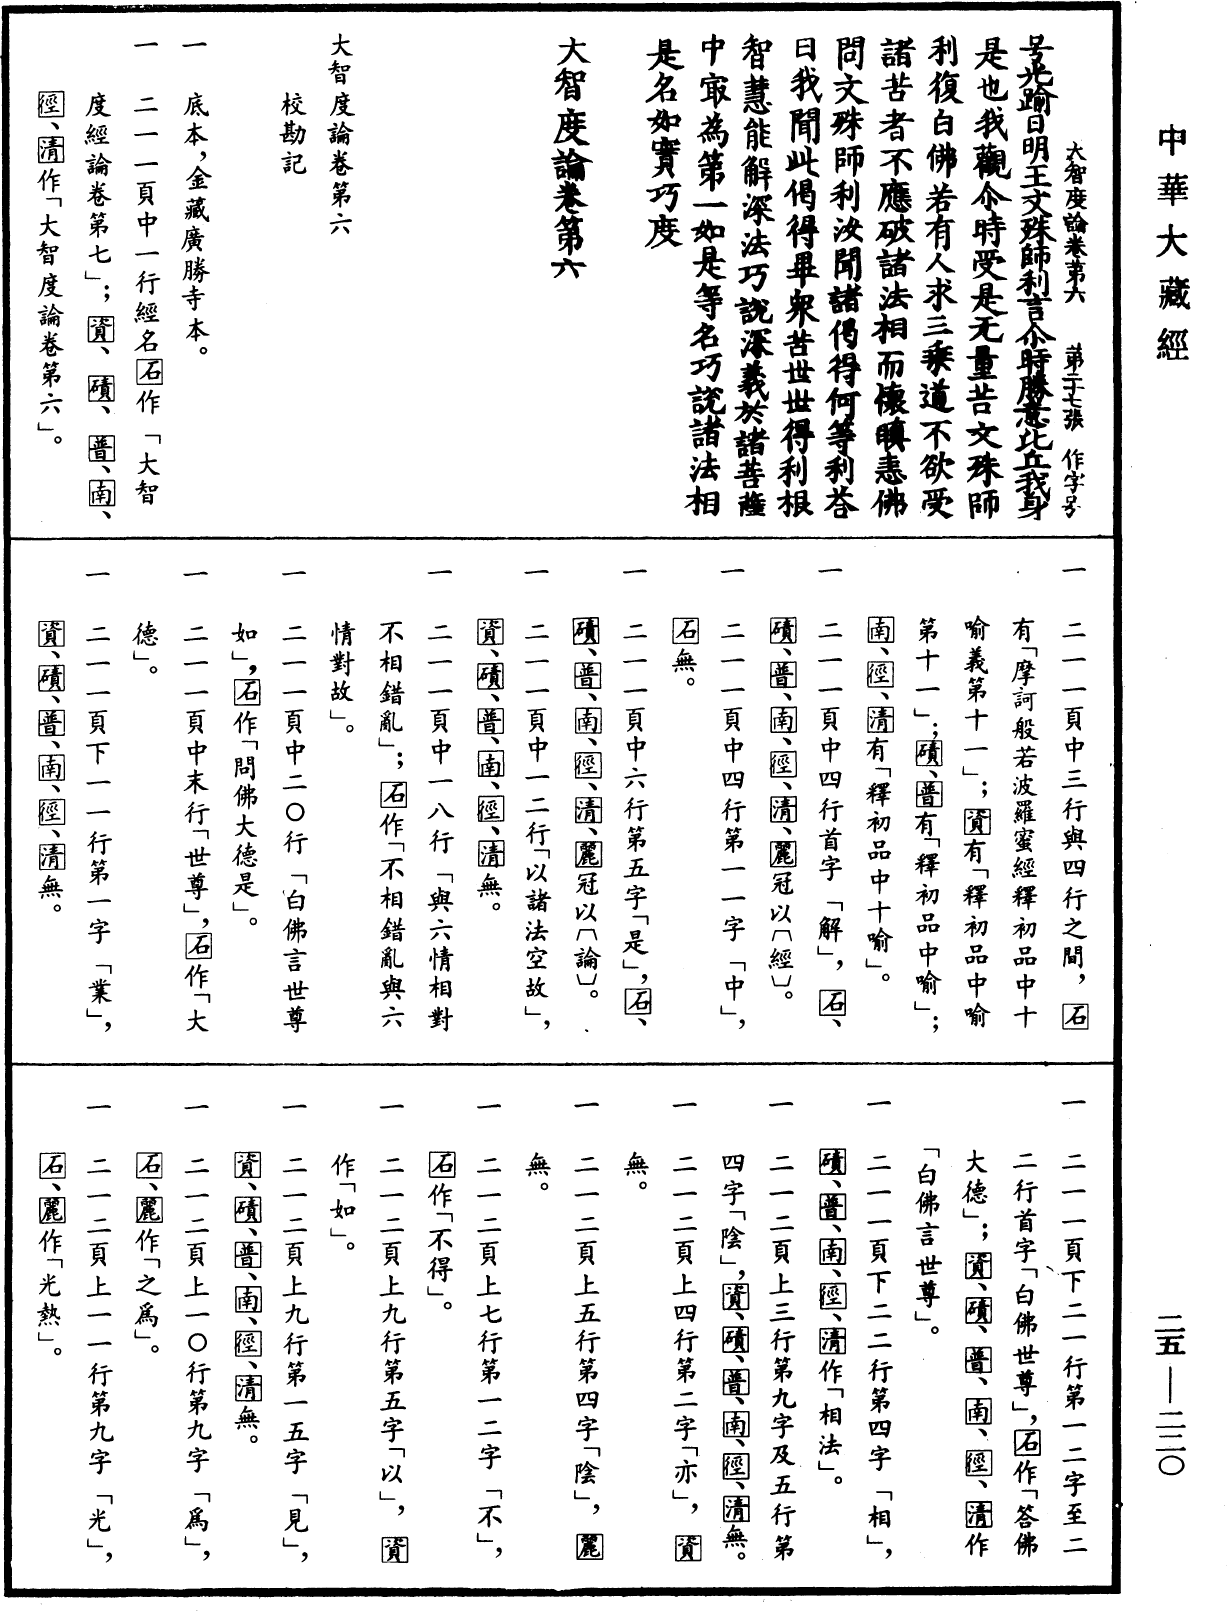 中華大藏經
二五—二二〇
大智度論卷第六　第二十七張　作字号
号光踰日明王文殊師利言尒時勝意比丘我身
是也我觀尒時受是无量苦文殊師
利復白佛若有人求三乗道不欲受
諸苦者不應破諸法相而懷瞋恚佛
問文殊師利汝聞諸偈得何等利荅
曰我聞此偈得畢衆苦世世得利根
智慧能解深法巧說深義於諸菩薩
中㝡為第一如是等名巧說諸法相
是名如實巧度
大智度論卷第六
大智度論卷第六
校勘記
一　底本，金藏廣勝寺本。
一　二一一頁中一行經名石作「大智
度經論卷第七」；資、磧、普、南、
徑、清作「大智度論卷第六」。
一　二一一頁中三行與四行之間，石
有「摩訶般若波羅蜜經釋初品中十
喻義第十一」；資有「釋初品中喻
第十一」；磧、普有「釋初品中喻」；
南、徑、清有「釋初品中十喻」。
一　二一一頁中四行首字「解」，石、
磧、普、南、徑、清、麗冠以〔經〕。
一　二一一頁中四行第一一字「中」，
石無。
一　二一一頁中六行第五字「是」，石、
磧、普、南、徑、清、麗冠以〔論〕。
一　二一一頁中一二行「以諸法空故」，
資、磧、普、南、徑、清無。
一　二一一頁中一八行「與六情相對
不相錯亂」；石作「不相錯亂與六
情對故」。
一　二一一頁中二〇行「白佛言世尊
如」，石作「問佛大德是」。
一　二一一頁中末行「世尊」，石作「大
德」。
一　二一一頁下一一行第一字「業」，
資、磧、普、南、徑、清無。
一　二一一頁下二一行第一二字至二
二行首字「白佛世尊」，石作「答佛
大德」；資、磧、普、南、徑、清作
「白佛言世尊」。
一　二一一頁下二二行第四字「相」，
磧、普、南、徑、清作「相法」。
一　二一二頁上三行第九字及五行第
四字「陰」，資、磧、普、南、徑、清無。
一　二一二頁上四行第二字「亦」，資
無。
一　二一二頁上五行第四字「陰」，麗
無。
一　二一二頁上七行第一二字「不」，
石作「不得」。
一　二一二頁上九行第五字「以」，資
作「如」。
一　二一二頁上九行第一五字「見」，
資、磧、普、南、徑、清無。
一　二一二頁上一〇行第九字「爲」，
石、麗作「之爲」。
一　二一二頁上一一行第九字「光」，
石、麗作「光熱」。